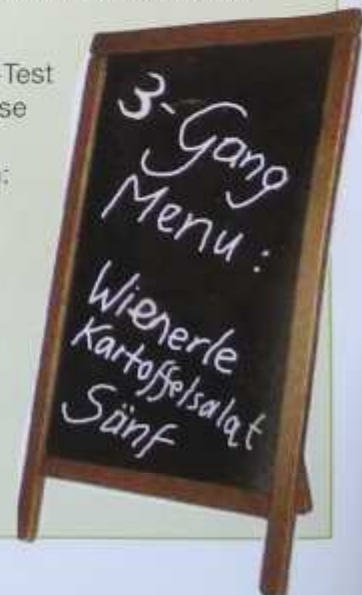 -Test
se
:
3-Gang
Menu :
Wienerle
Kartoffelsalat
Sänf